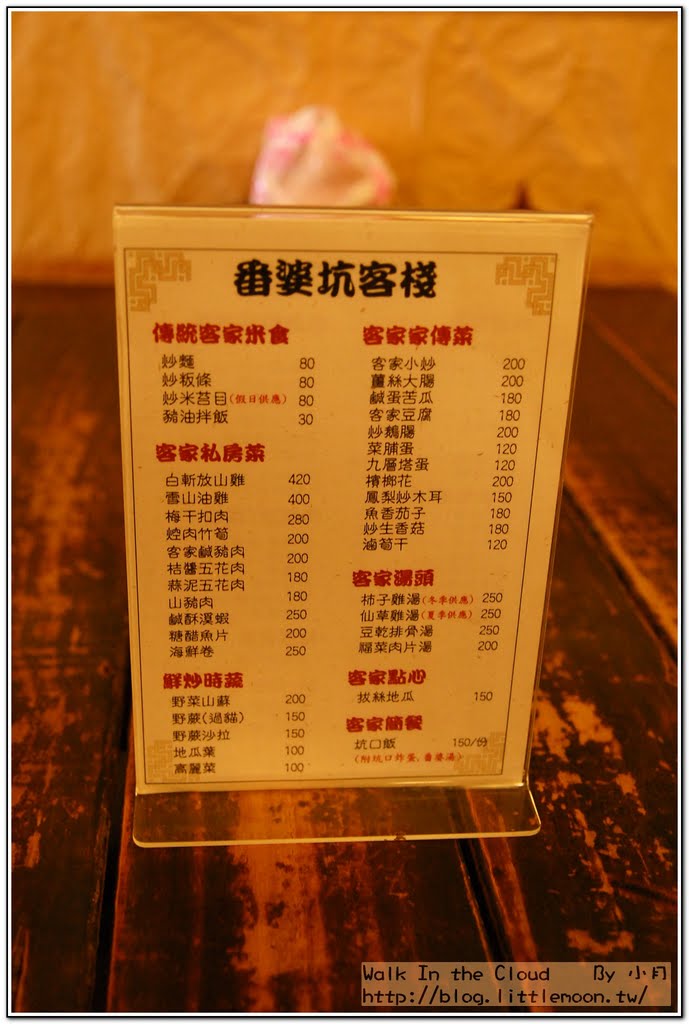 番婆坑客棧
傳統客家米食
炒麵 80
炒粄條 80
炒米苔目(假日供應) 80
豬油拌飯 30
客家私房菜
白斬放山雞 420
雪山油雞 400
梅干扣肉 280
焢肉竹筍 200
客家鹹豬肉 200
桔醬五花肉 180
蒜泥五花肉 180
山豬肉 180
鹹酥溪蝦 250
糖醋魚片 200
海鮮卷 250
鮮炒時蔬
野菜山蘇 200
野蕨(過貓) 150
野蕨沙拉 150
地瓜葉 100
高麗菜 100
客家家傳菜
客家小炒 200
薑絲大腸 200
鹹蛋苦瓜 180
客家豆腐 180
炒鵝腸 200
菜脯蛋 120
九層塔蛋 120
檳榔花 200
鳳梨炒木耳 150
魚香茄子 180
炒生香菇 180
滷筍干 120
客家湯頭
柿子雞湯(冬季供應) 250
仙草雞湯(夏季供應) 250
豆乾排骨湯 250
福菜肉片湯 200
客家點心
拔絲地瓜 150
客家簡餐
坑口飯 150/份
(附坑口炸蛋、番婆湯)
Walk In the Cloud By 小月
http://blog.littlemoon.tw/